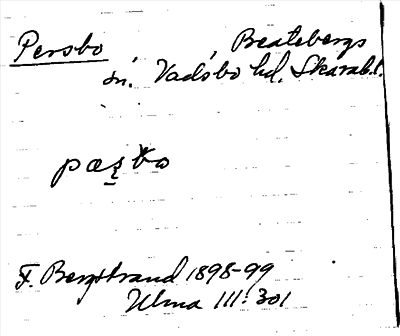 Persbo Beatebergs
sn. Vadsbo hd. Skarab.l.
F. Bergstrand 1898-99
Ulma 111:301